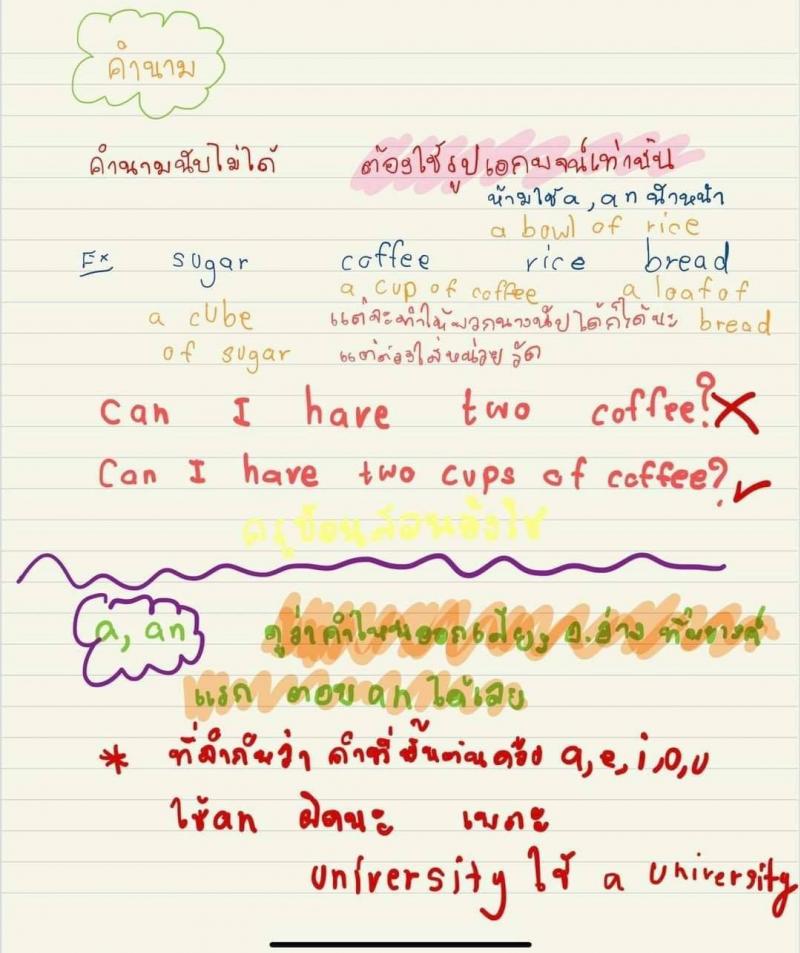 คำนาม
คำนามนับไม่ได้ ต้องใช้รูปเอกพจน์เท่านั้น
ห้ามใช้a, an นำหน้า
a bowl of rice
Ex sugar coffee rice bread
a cup of coffee a loaf of
a cube แต่จะทำให้พวกนางนับได้ก็ได้นะ bread
of sugar แต่ต้องใส่หน่วยวัด
Can I have two coffee? X
Can I have two cups of coffee? ✓
ครูช้อนสอนอังไช
a, an ดูว่าคำไหนออกเสียง อ.อ่าง ที่พยางค์
แรก ตอบ an ได้เลย
* ที่จำกันว่า คำที่ขึ้นต้นด้วย a, e, i, o, u
ใช้an ผิดนะ เพราะ
university ใช้ a university